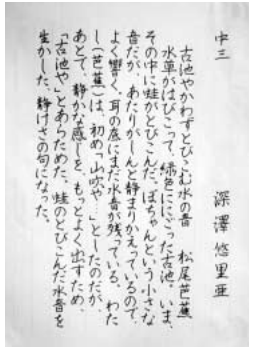 中三
深澤悠里亜
古池やかわずとびこむ水の音　松尾芭蕉
水草がはびこって、緑色ににごった古池。いま、
その中に蛙がとびこんだ。ぽちゃんという小さな
音だが、あたりがしんと静まりかえっているので、
よく響く。耳の底にまだ水音が残っている。わた
し(芭蕉)は、初め「山吹や」としたのだが、
あとで、静かな感じを、もっとよく出すため、
「古池や」とあらためた。蛙のとびこんだ水音を
生かした、静けさの句になった。